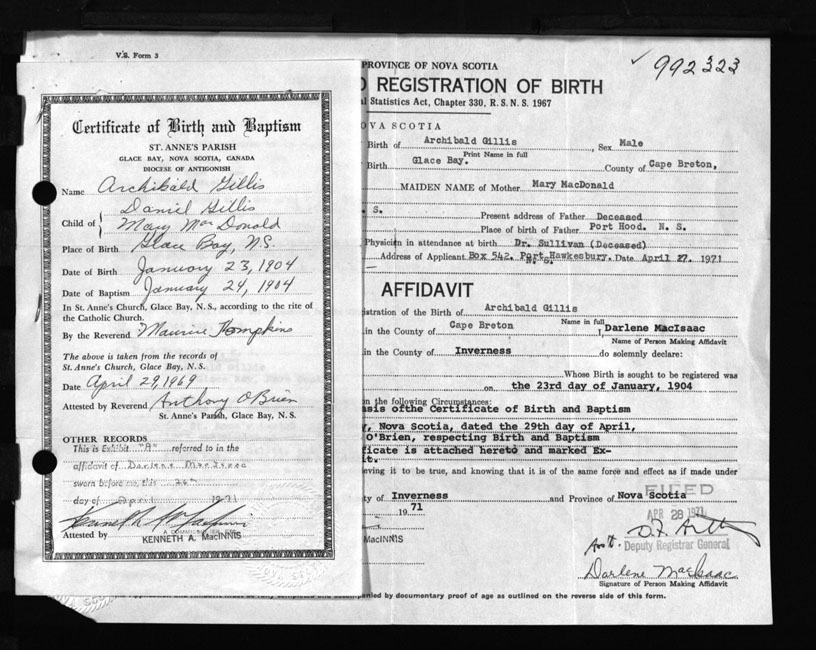 V.S. Form 3
Certificate of Birth and Baptism
ST. ANNE'S PARISH
GLACE BAY, NOVA SCOTIA, CANADA
DIOCESE OF ANTIGONISH
Name Archibald Gillis
Daniel Gillis
Child of
Mary MacDonald
Place of Birth Glace Bay, N.S.
Date of Birth January 23, 1904
Date of Baptism January 24, 1904
In St. Anne's Church, Glace Bay, N. S., according to the rite of
the Catholic Church.
By the Reverend Maurice Tompkins
The above is taken from the records of
St. Anne's Church, Glace Bay, N. S.
Date April 29, 1969
Attested by Reverend Anthony O'Brien
St. Anne's Parish, Glace Bay, N. S.
OTHER RECORDS
This is Exhibit "A" referred to in the
affidavit of Darlene MacIsaac
sworn before me, this 26th
day of April 1971
Attested by
KENNETH A. MacINNIS
PROVINCE OF NOVA SCOTIA
992323
REGISTRATION OF BIRTH
al Statistics Act, Chapter 330, R. S. N. S. 1967
OVA SCOTIA
Birth of Archibald Gillis, Sex Male
Print Name in full
Birth Glace Bay. County of Cape Breton,
MAIDEN NAME of Mother Mary MacDonald
. S.
Present address of Father Deceased
Place of birth of Father Port Hood. N. S.
Physician in attendance at birth Dr. Sullivan (Deceased)
Address of Applicant Box 542. Port Hawkesbury. Date April 27. 1971
N. S.
AFFIDAVIT
istration of the Birth of Archibald Gillis
Name in full
in the County of Cape Breton I, Darlene MacIsaac
Name of Person Making Affidavit
in the County of Inverness do solemnly declare:
Whose Birth is sought to be registered was
on the 23rd day of January, 1904
on the following Circumstances:
asis ofthe Certificate of Birth and Baptism
, Nova Scotia, dated the 29th day of April,
O'Brien, respecting Birth and Baptism
ficate is attached hereto and marked Ex-
t.
eving it to be true, and knowing that it is of the same force and effect as if made under
ty of Inverness and Province of Nova Scotia
FILED
1971
APR 28 1971
MacINNIS
Deputy Registrar General
Darlene MacIsaac
Signature of Person Making Affidavit
nied by documentary proof of age as outlined on the reverse side of this form.